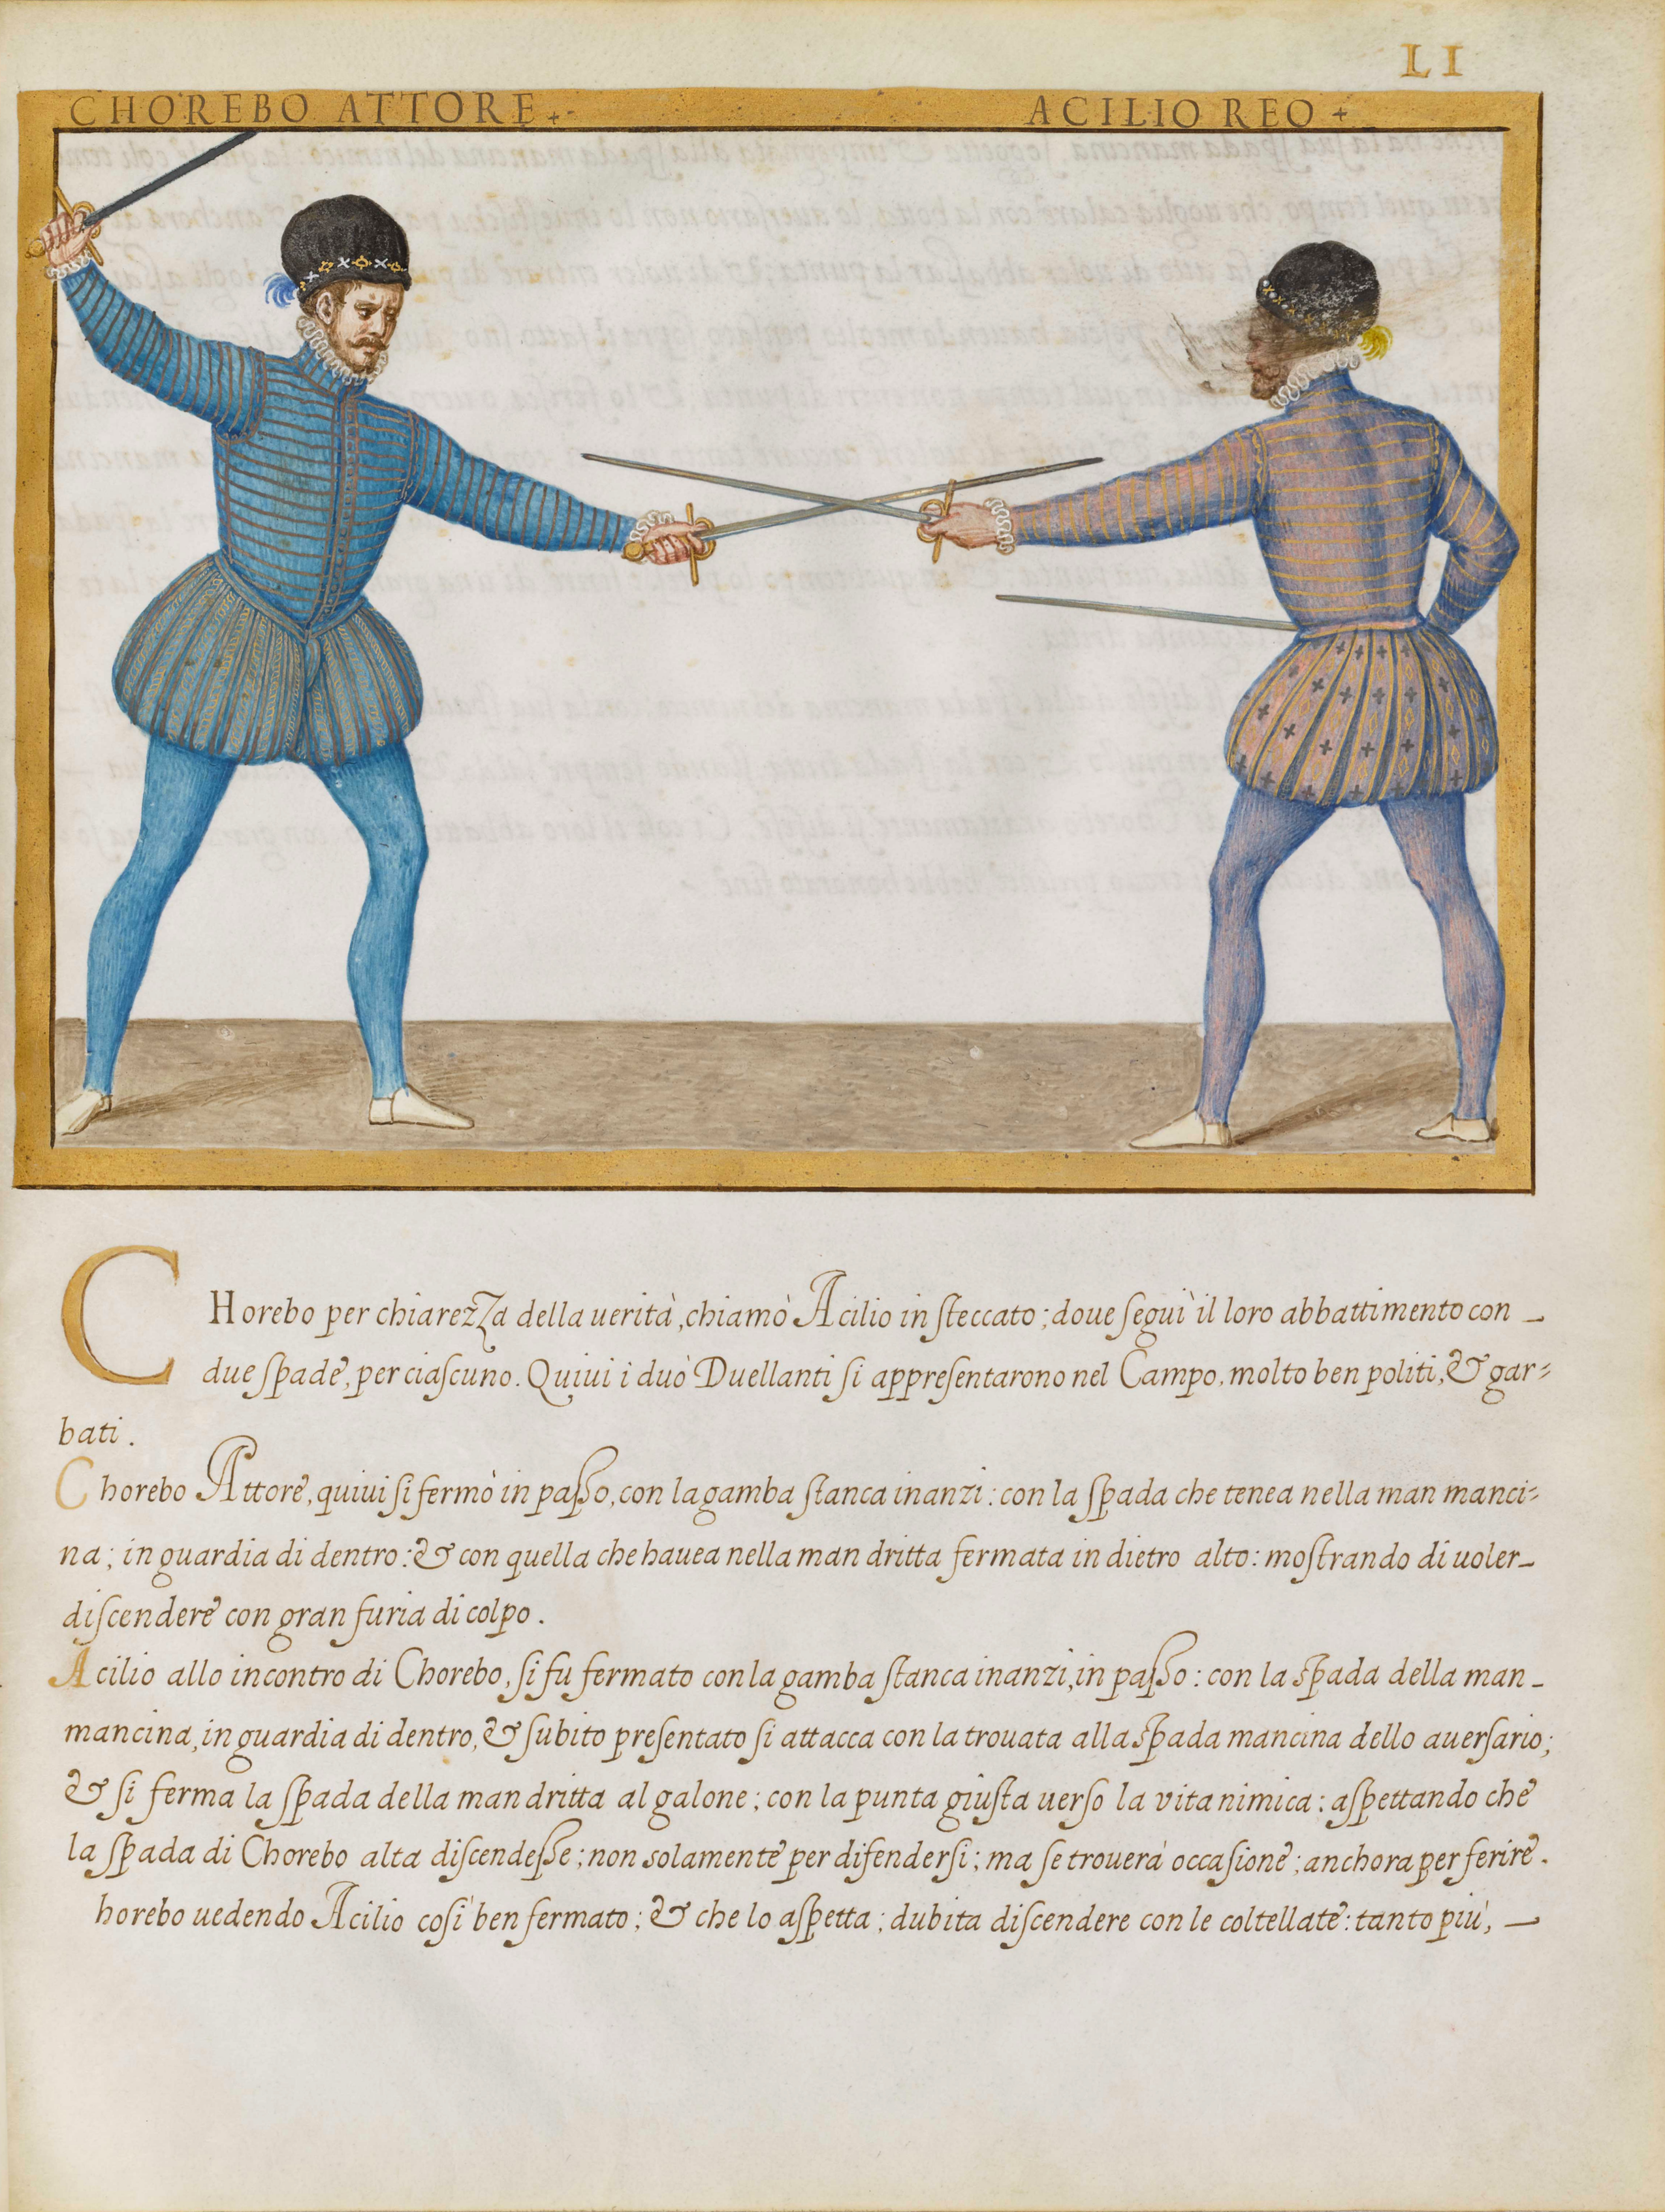 LI
CHOREBO ATTORE
ACILIO REO
CHorebo per chiarezza della uerità, chiamò Acilio in steccato; doue seguì il loro abbattimento con
due spade, per ciascuno. Quiui i duò Duellanti si appresentarono nel Campo, molto ben politi, & gar-
bati.
Chorebo Attore, quiui si fermò in passo, con la gamba stanca inanzi: con la spada che tenea nella man manci-
na; in guardia di dentro: & con quella che hauea nella man dritta fermata in dietro alto: mostrando di uoler
discendere con gran furia di colpo.
Acilio allo incontro di Chorebo, si fu fermato con la gamba stanca inanzi, in passo: con la spada della man
mancina, in guardia di dentro, & subito presentato si attacca con la trouata alla spada mancina dello auersario;
& si ferma la spada della man dritta al galone; con la punta giusta uerso la vita nimica: aspettando che
la spada di Chorebo alta discendesse; non solamente per difendersi; ma se trouerà occasione; anchora per ferire.
horebo uedendo Acilio così ben fermato; & che lo aspetta; dubita discendere con le coltellate: tanto più,